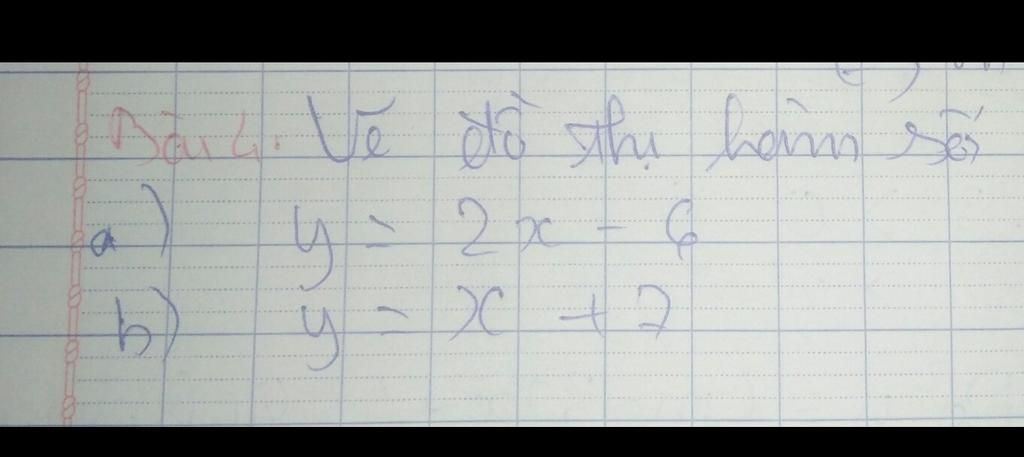 Bài 4. Vẽ đồ thị hàm số
a) y = 2x - 6
b) y = x + 7